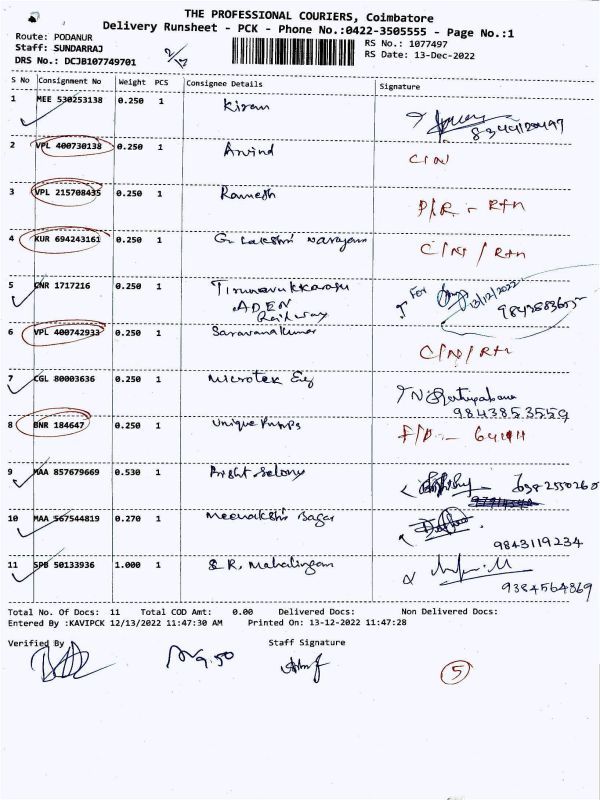 THE PROFESSIONAL COURIERS, Coimbatore
Delivery Runsheet - PCK - Phone No.:0422-3505555 - Page No.:1
Route: PODANUR
Staff: SUNDARRAJ
DRS No.: DCJB107749701
RS No.: 1077497
RS Date: 13-Dec-2022
S No Consignment No Weight PCS Consignee Details Signature
1 MEE 530253138 0.250 1 Kiram
2 VPL 400730138 0.250 1 Arvind C/N
3 VPL 215708435 0.250 1 Ramesh P/R - Rtn
4 KUR 694243161 0.250 1 G. Lakshmi Narayam C/N / Rtn
5 CNR 1717216 0.250 1 Tirunavukkarasu
ADEN
Railway
For 13/12/2022
6 VPL 400742933 0.250 1 Saravanakumar C/N/Rtn
7 CGL 80003636 0.250 1 Microtek Eng
9843853559
8 BNR 184647 0.250 1 Unique Pumps
9 MAA 857679669 0.530 1
10 MAA 567544819 0.270 1 Meenakshi Sagar
9843119234
11 SPB 50133936 1.000 1 S R. Mahalingam
9384564869
Total No. Of Docs: 11 Total COD Amt: 0.00 Delivered Docs: Non Delivered Docs:
Entered By :KAVIPCK 12/13/2022 11:47:30 AM Printed On: 13-12-2022 11:47:28
Verified By Staff Signature
9.50
5